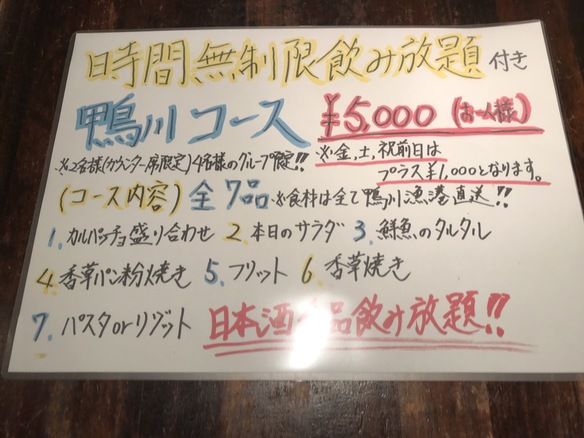 時間無制限飲み放題付き
鴨川コース ¥5,000(お一人様)
※2名様(カウンター席限定)4名様のグループ限定!!
※金,土,祝前日は
プラス¥1,000となります。
(コース内容)全7品 ※食材は全て鴨川漁港直送!!
1. カルパッチョ盛り合わせ 2. 本日のサラダ 3. 鮮魚のタルタル
4. 香草パン粉焼き 5. フリット 6. 香草焼き
7. パスタorリゾット 日本酒 品飲み放題!!